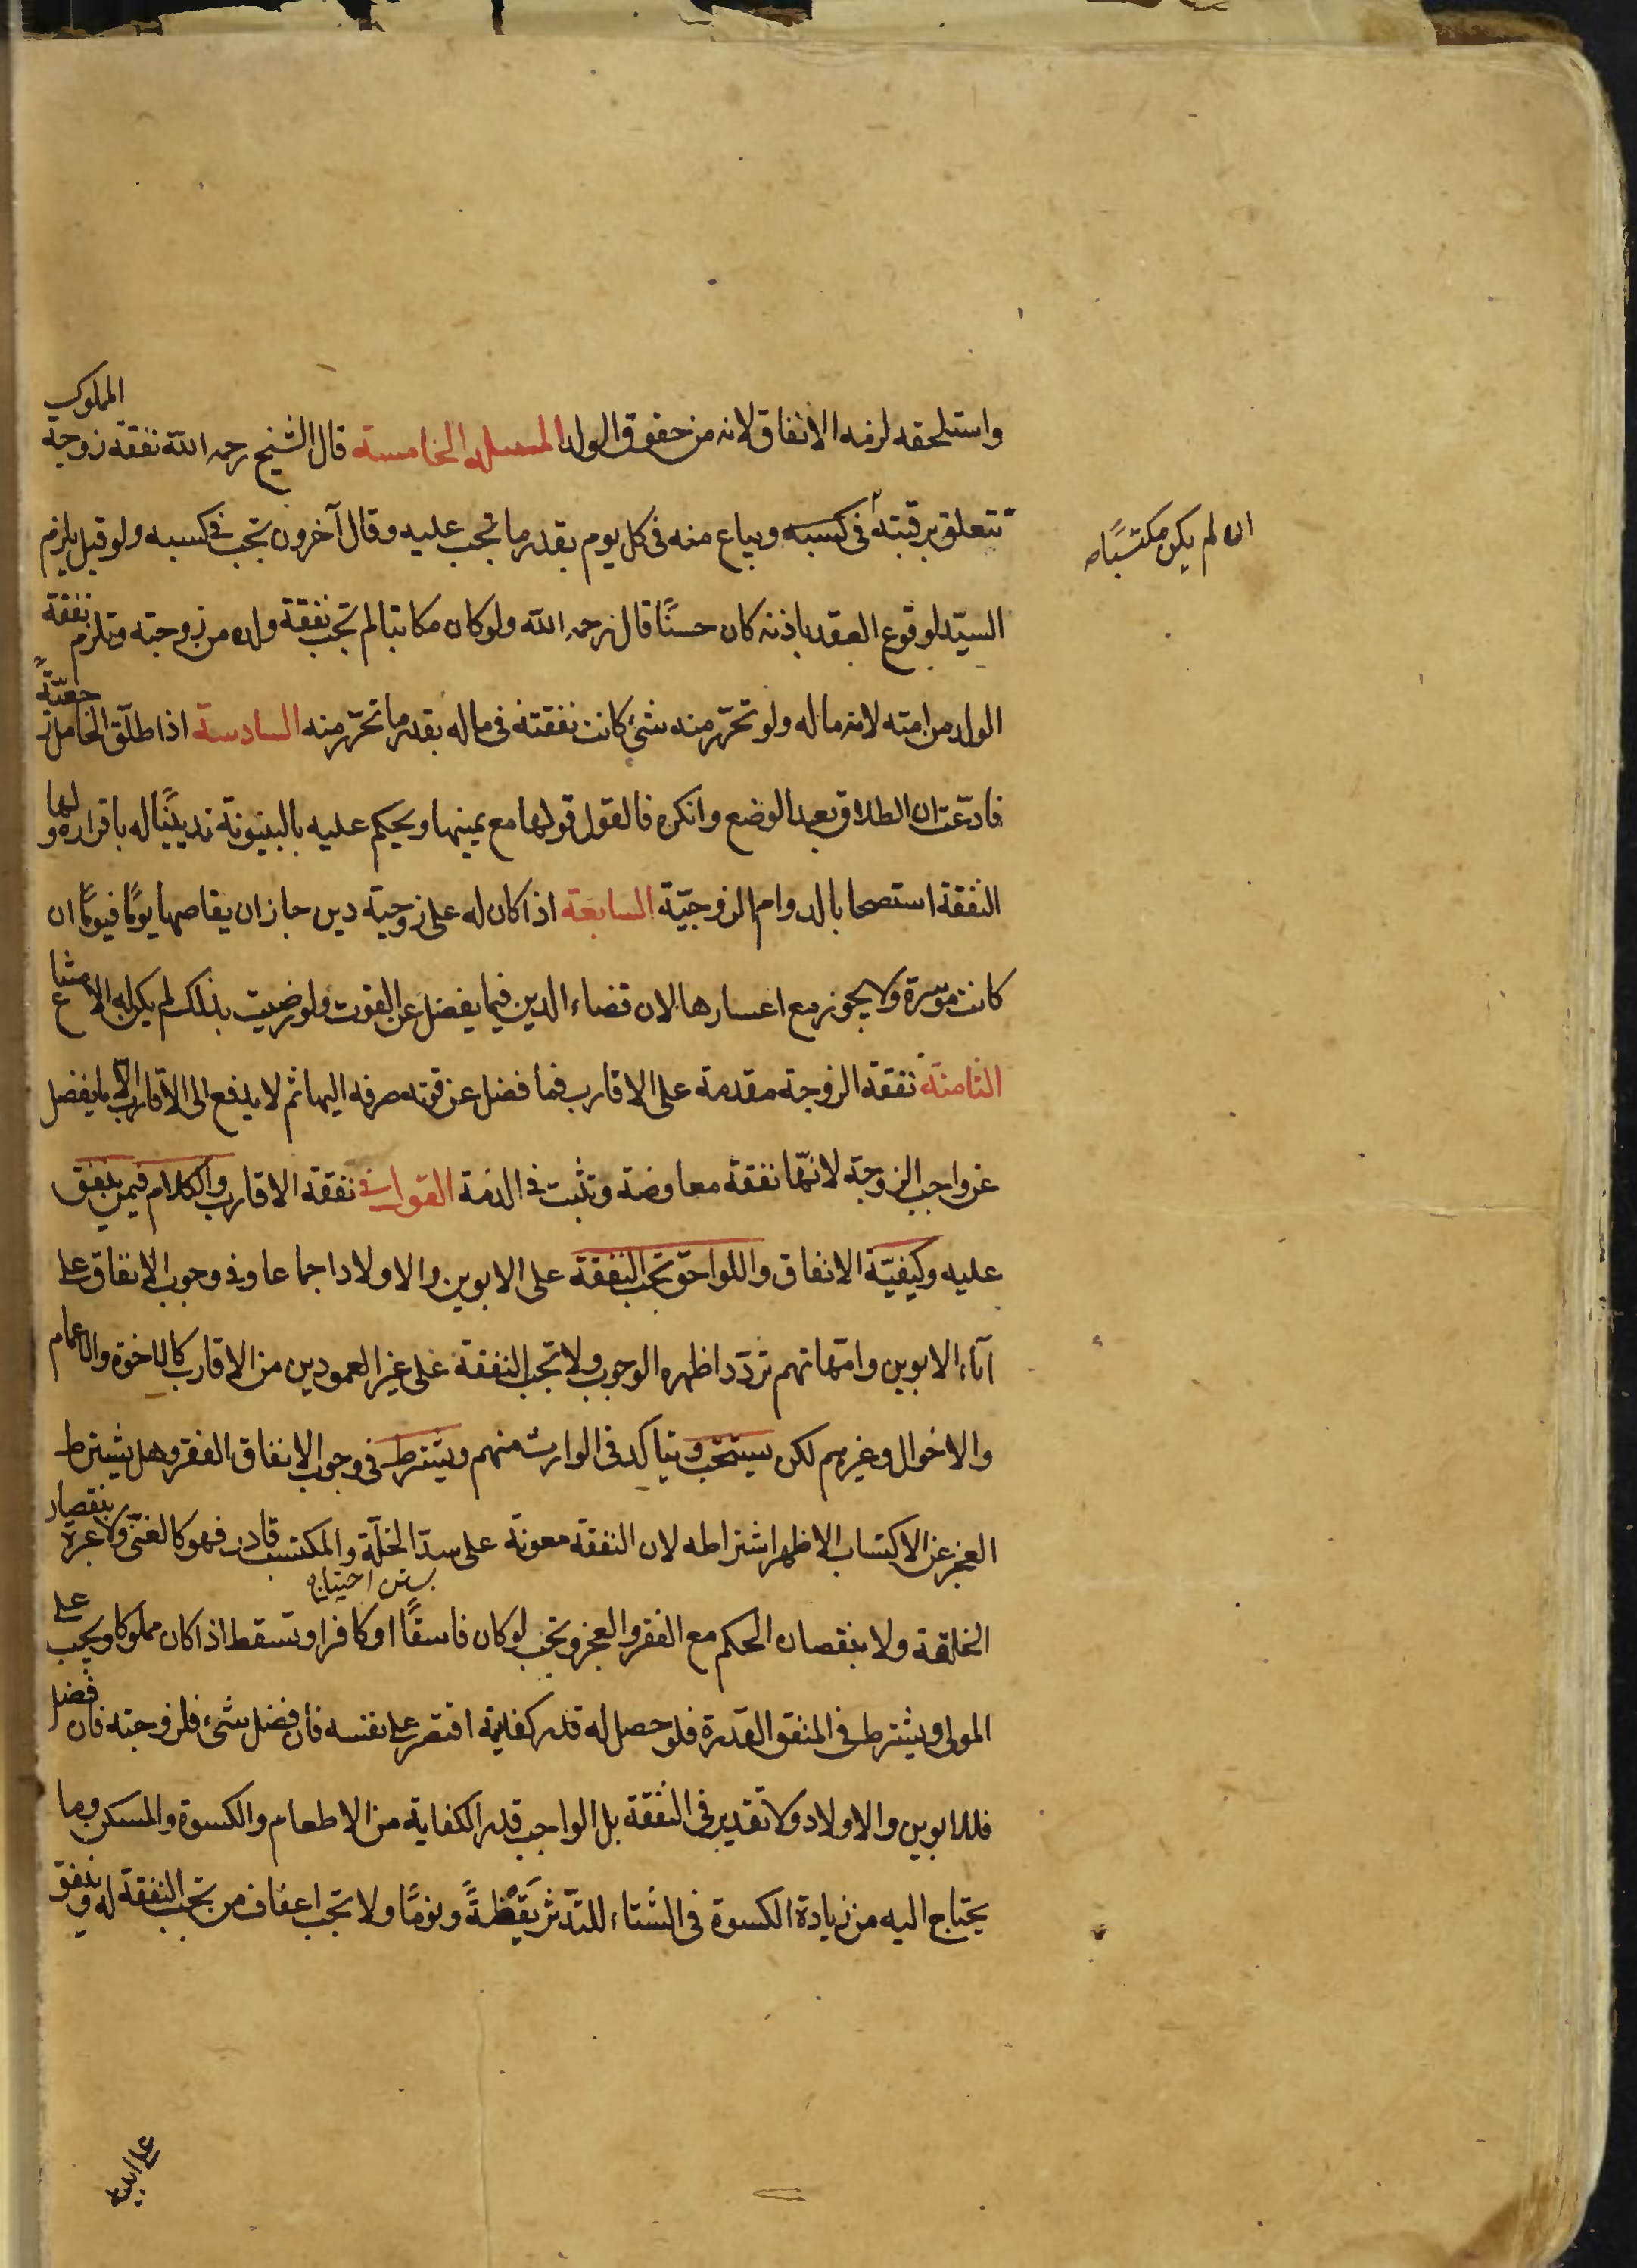 واستلحقه لزمه الانفاق لانه من حقوق الولد المسئلة الخامسة قال الشيخ رحمه الله نفقة زوجة المملوك
تتعلق برقبته في كسبه ويباع منه في كل يوم بقدر ما تجب عليه وقال آخرون تجب في كسبه ولو قيل يلزم
ان لم يكن مكتسبًا
السيّد لوقوع العقد باذنه كان حسنًا قال رحمه الله ولو كان مكاتبا لم تجب نفقة ولده من زوجته وتلزم نفقة
الولد من امته لانه ماله ولو تحرّر منه شئ كانت نفقته في ماله بقدر ما تحرّر منه السادسة اذا طلّق الحامل رجعيّةً
فادّعت ان الطلاق بعد الوضع وانكره فالقول قولها مع يمينها ويحكم عليه بالبينونة تديينًا له باقراره ولها
النفقة استصحابا لدوام الزوجيّة السابعة اذا كان له على زوجته دين جاز ان يقاصها يومًا فيومًا ان
كانت موسرة ولا يجوز مع اعسارها لان قضاء الدين فيما يفضل عن القوت ولو رضيت بذلك لم يكن له الامتناع
الثامنة نفقة الزوجة مقدمة على الاقارب فما فضل عن قوته صرفه اليها ثم لا يدفع الى الاقارب الا ما يفضل
عن واجب الزوجة لانّها نفقة معاوضة وتثبت في الذمة القول في نفقة الاقارب والكلام فيمن ينفق
عليه وكيفيّة الانفاق واللواحق تجب النفقة على الابوين والاولاد اجماعا وفي وجوب الانفاق على
آباء الابوين وامّهاتهم تردّد اظهره الوجوب ولا تجب النفقة على غير العمودين من الاقارب كالاخوة والاعمام
والاخوال وغيرهم لكن يستحب ويتاكد في الوارث منهم ويشترط في وجوب الانفاق الفقر وهل يشترط
العجز عن الاكتساب الاظهر اشتراطه لان النفقة معونة على سدّ الخلّة والمكتسب قادر فهو كالغنيّ ولا عبرة بنقصان
الخلقة ولا بنقصان الحكم مع الفقر والعجز وتجب لو كان فاسقًا او كافرا وتسقط اذا كان مملوكا ويجب على
المولى ويشترط في المنفق القدرة فلو حصل له قدر كفايته اقتصر على نفسه فان فضل شئ فلزوجته فان فضل
فللابوين والاولاد ولا تقدير في النفقة بل الواجب قدر الكفاية من الاطعام والكسوة والمسكن وما
يحتاج اليه من زيادة الكسوة في الشتاء للتدّثر يَقْظةً ونومًا ولا تجب اعفاف من تجب النفقة له وينفق
على ابيه